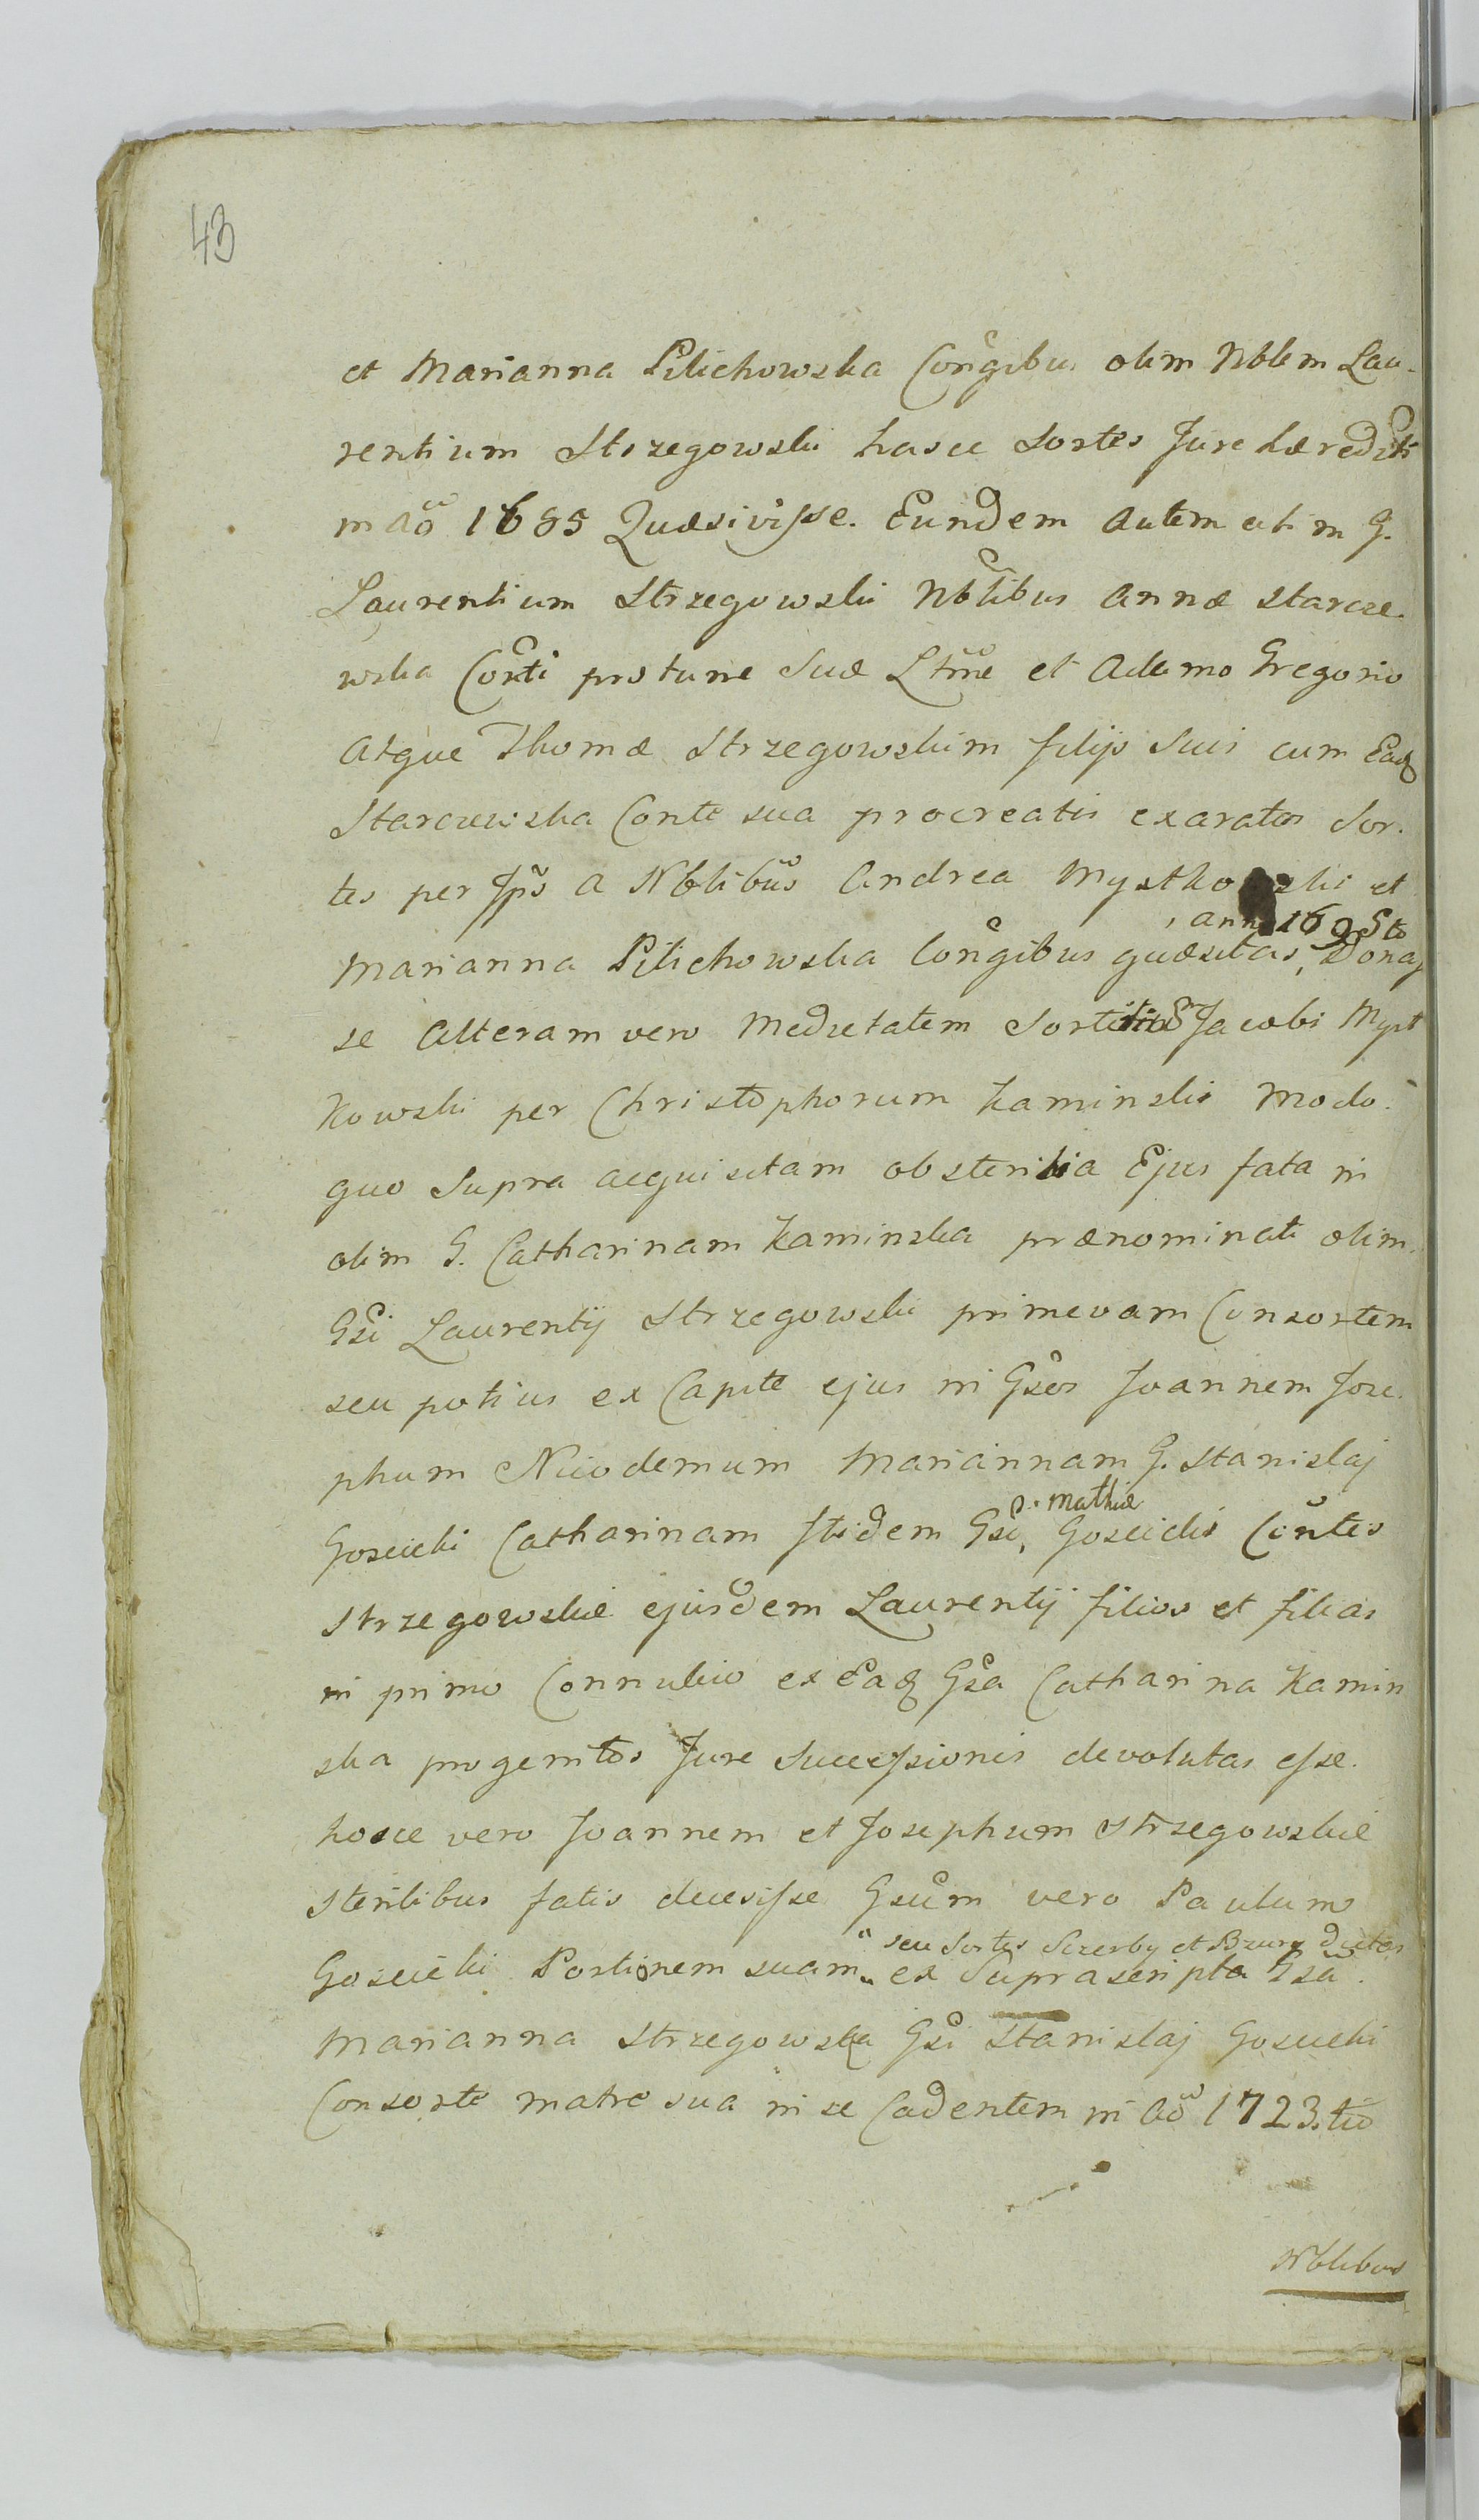 43
et Marianna Pilichowska Congibus olim Nblem Lau-
rentium Strzegowski hasce Sortes Jure hæredit
in Aõ 1685 Quæsivisse. Eundem autem eti m G.
Laurentium Strzegowski Nblibus Annæ Starcze-
wska Conti pro tunc suæ Ltmæ et Adamo Gregorio
atque Thomæ Strzegowskim filijs suis cum Eadq
Starczewska Conte sua procreatis exaratas Sor-
tes per Jps a Nblibus Andrea Mystkowski et
, anno 1695to
Marianna Pilichowska Congibus quæsitas, Donas
se Alteram vero Medietatem Sortis Jacobi Myst
kowski per Christophorum Kaminski modo
quo supra acquisitam ob sterilia Ejus fata in
olim G. Catharinam Kaminska prænominati olim
Gsi Laurentij Strzegowski primevam Consortem
seu potius ex Capite ejus in Gsos Joannem Jose-
phum Nicodemum Mariannam G. Stanislaj
Mathiæ
Goscicki Catharinam Itidem Gsi, Goscicki Contes
Strzegowskie ejusdem Laurentij filios et filias
in primo Connubio ex Eadq Gsa Catharina Kamin
ska progenitos Jure Successionis devolutas esse.
hosce vero Joannem et Josephum Strzegowskie
sterilibus fatis decesisse Gsum vero Paulum
seu Sortes Szczerby et Bzury dictas
Goscicki Portionem suam ex Suprascripta Gsa
Marianna Strzegowska Gsi Stanislaj Goscicki
Consorte matre sua in se Cadentem in Aõ 1723.tio
Nblibus